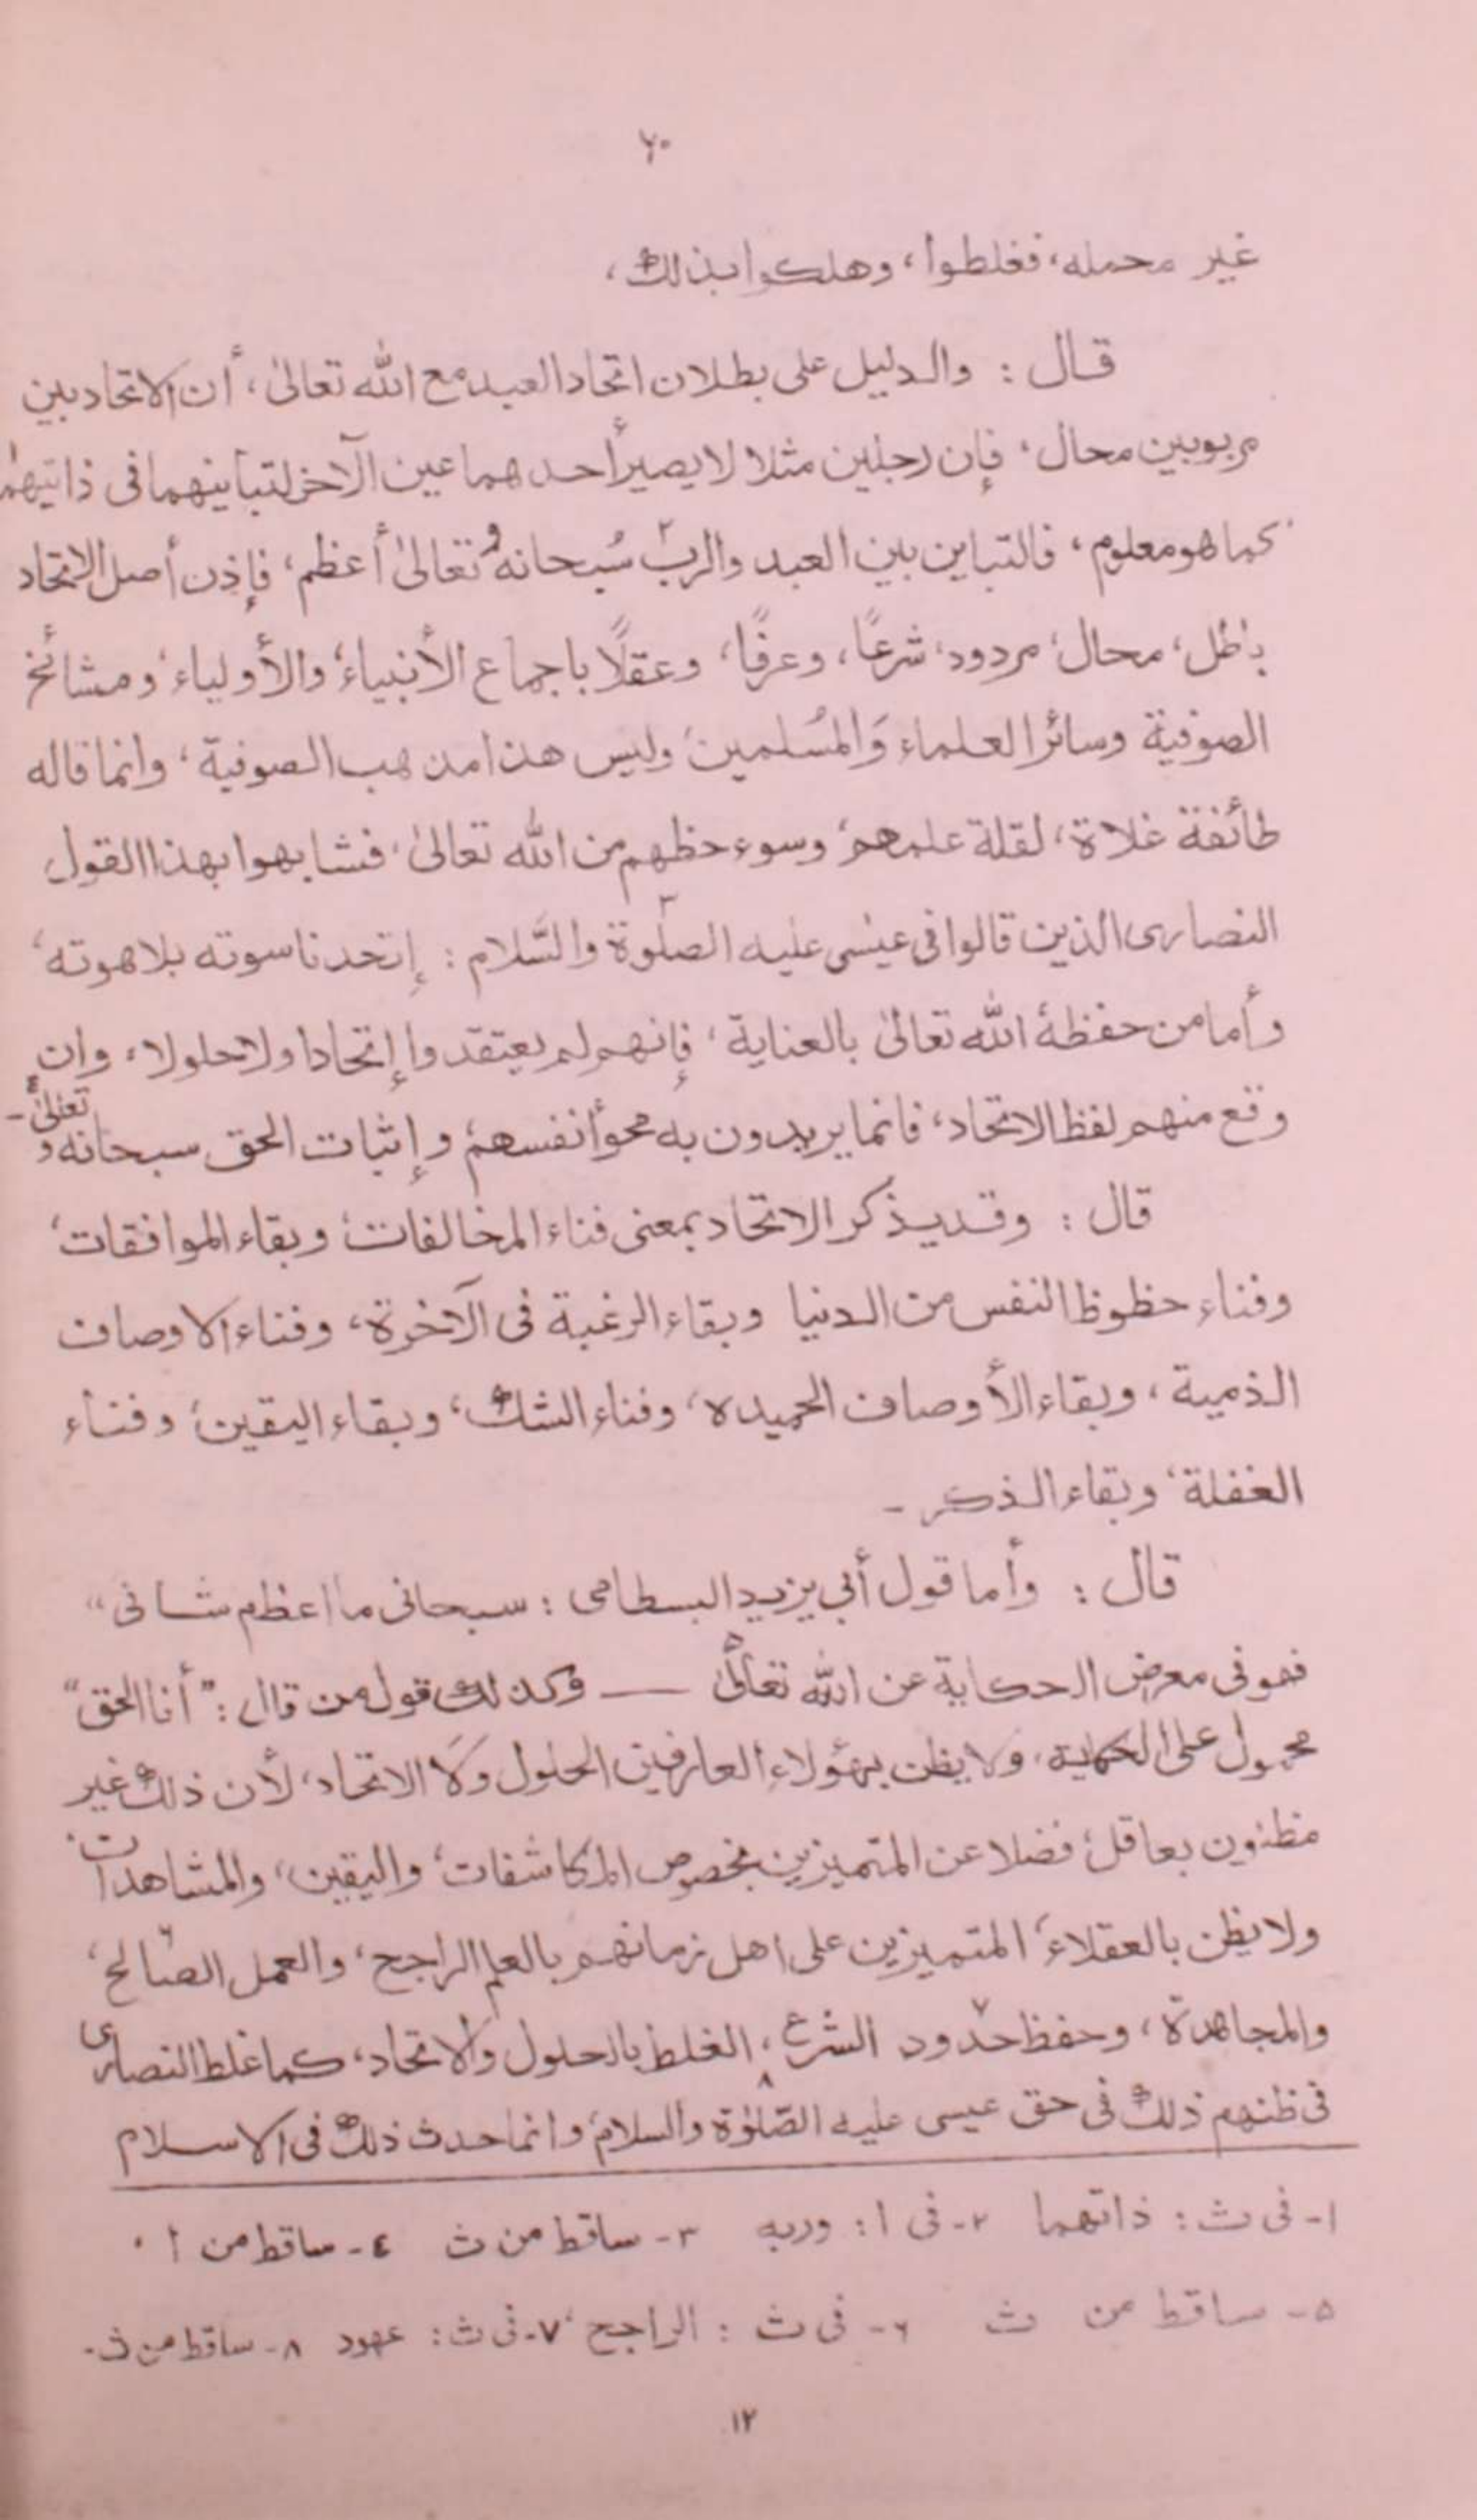 ٦٠
غير محمله، فغلطوا، وهلكوا بذلك،
قال : والدليل على بطلان اتحاد العبد مع الله تعالىٰ، أن الاتحاد بين
مربوبين محال، فإن رجلين مثلا لا يصير أحدهما عين الآخر لتباينهما فى ذاتيهما¹
كما هو معلوم، فالتباين بين العبد والربّ² سُبحانهُ وتعالىٰ أعظم، فإذن أصل الاتحاد
باطل، محال، مردود، شرعًا، وعرفًا، وعقلًا باجماع الأنبياء، والأولياء، ومشائخ
الصوفية وسائر العلماء وَالمُسلمين، وليس هذا مذهب الصوفية، وانما قاله
طائفة غلاة، لقلة علمهم، وسوء حظهم من الله تعالىٰ، فشابهوا بهذا القول
النصارى الذين قالوا فى عيسٰى عليه الصلٰوة³ والسَّلام : إتحد ناسوته بلاهوته،
وأما من حفظهُ الله تعالىٰ بالعناية، فإنهم لم يعتقدوا إتحادا ولا حلولا، وان
وقع منهم لفظ الاتحاد، فانما يريدون به محو أنفسهم، وإثبات الحق سبحانه و تعالىٰ⁴ -
قال : وقد يذكر الاتحاد بمعنى فناء المخالفات، وبقاء الموافقات،
وفناء حظوظ النفس من الدنيا وبقاء الرغبة فى الآخرة، وفناء الاوصاف
الذمية، وبقاء الأوصاف الحميده، وفناء الشك، وبقاء اليقين، وفناء
الغفلة، وبقاء الذكر -
قال : وأما قول أبي يزيد البسطامى : سبحانى ما اعظم شانى “
فهو فى معرض الحكاية عن الله تعالىٰ⁵ — وكذلك قول من قال : ” أنا الحق “
محمول على الحكاية، ولا يظن بهؤلاء العارفين الحلول وَلَا الاتحاد، لأن ذلك غير
مظنون بعاقل، فضلا عن المتميزين بخصوص المكاشفات، واليقين، والمشاهدات.
ولا يظن بالعقلاء، المتميزين على اهل زمانهم بالعلم الراجح، والعمل الصالح⁶،
والمجاهدة، وحفظ حدود⁷ الشرع، الغلط⁸ بالحلول والاتحاد، كما غلط النصارى
فى ظنهم ذلك فى حق عيسى عليه الصّلٰوة والسلام، وانما حدث ذلك فى الاسلام
١- فى ث : ذاتهما ٢- فى ا : وربه ٣- ساقط من ث ٤- ساقط من أ .
٥- ساقط من ث ٦- فى ث : الراجح ٧- فى ث : عهود ٨- ساقط من ث -
١٢